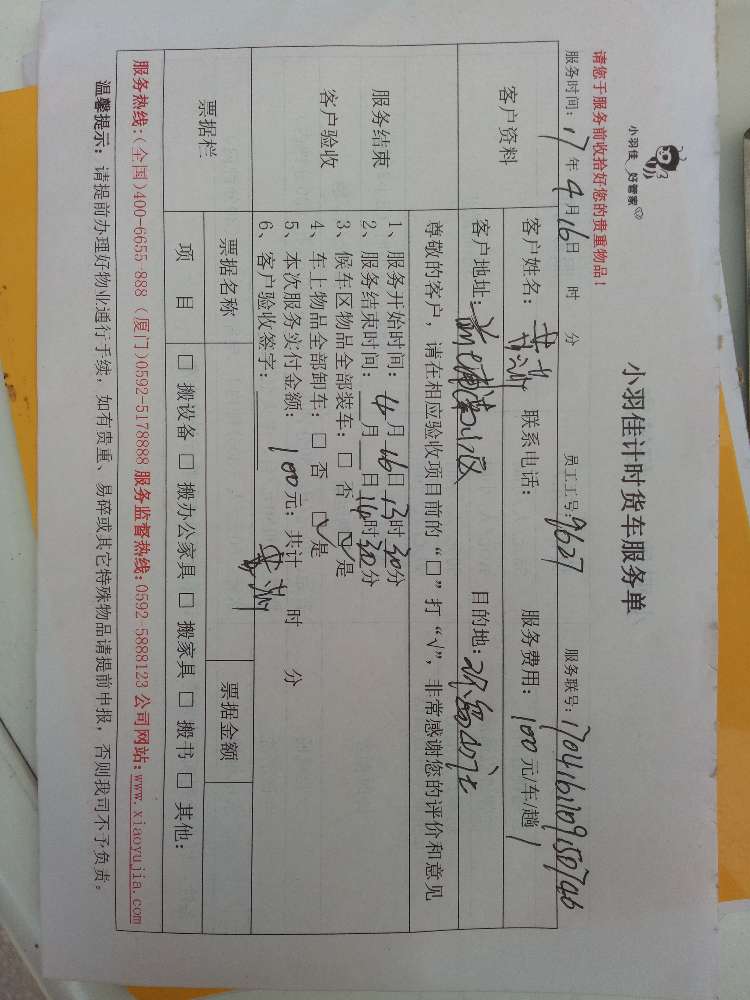 小羽佳 好管家
小羽佳计时货车服务单
请您于服务前收拾好您的贵重物品!
服务时间: 17年4月16日 时 分 员工工号: 9627 服务联号:
客户资料
客户姓名: 联系电话: 服务费用: 100元/车/趟
客户地址: 目的地:
服务结束
客户验收
尊敬的客户，请在相应验收项目前的“□”打“√”，非常感谢您的评价和意见
1、服务开始时间: 4月16日13时30分
2、服务结束时间: 月 日14时30分
3、候车区物品全部装车: □ 否 ☑ 是
4、车上物品全部卸车: □ 否 ☑ 是
5、本次服务实付金额: 100元; 共计 时 分
6、客户验收签字:
票据栏
票据名称 票据金额
项 目 □ 搬设备 □ 搬办公家具 □ 搬家具 □ 搬书 □ 其他:
服务热线:(全国)400-6655-888 (厦门)0592-5178888 服务监督热线:0592-5888123 公司网站:www.xiaoyujia.com
温馨提示: 请提前办理好物业通行手续，如有贵重、易碎或其它特殊物品请提前申报，否则我司不予负责。